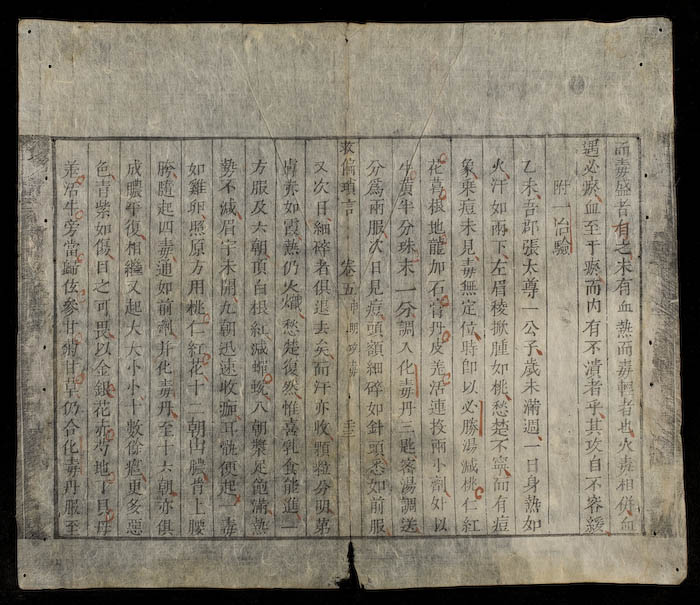 而毒盛者有之未有血熱而毒輕者也火毒相併血
遇必瘀血至于瘀而內有不潰者乎其攻自不容緩
附一治驗
乙未吾郡張太尊一公子歲未滿週一日身熱如
火汗如雨下左眉稜掀腫如桃愁楚不寧而有痘
象來痘未見毒無定位時卽以必勝湯減桃仁紅
花葛根地龍加石膏丹皮羌活連投兩小劑另以
牛黃半分珠末一分調入化毒丹三匙密湯調送
分爲兩服次日見痘頭額細碎如針頭悉如前服
救偏瑣言 卷五
又次日細碎者俱退去矣而汗亦收顆粒分明第
膚赤如霞熱仍火熾愁楚復然惟喜乳食能進一
方服及六朝頂白根紅減蟬蛻八朝漿足飽滿熱
勢不減眉宇未開九朝迅速收痂耳後便起一毒
如雞卵照原方用桃仁紅花十一朝出膿肯上腰
胯隨起四毒通如前劑幷化毒丹至十六朝亦俱
成膿平復相繼又起大大小小十數餘瘟更多惡
色青紫如傷目之可畏以金銀花赤芍地丁貝母
羌活牛旁當歸伭參甘菊甘草仍合化毒丹服至